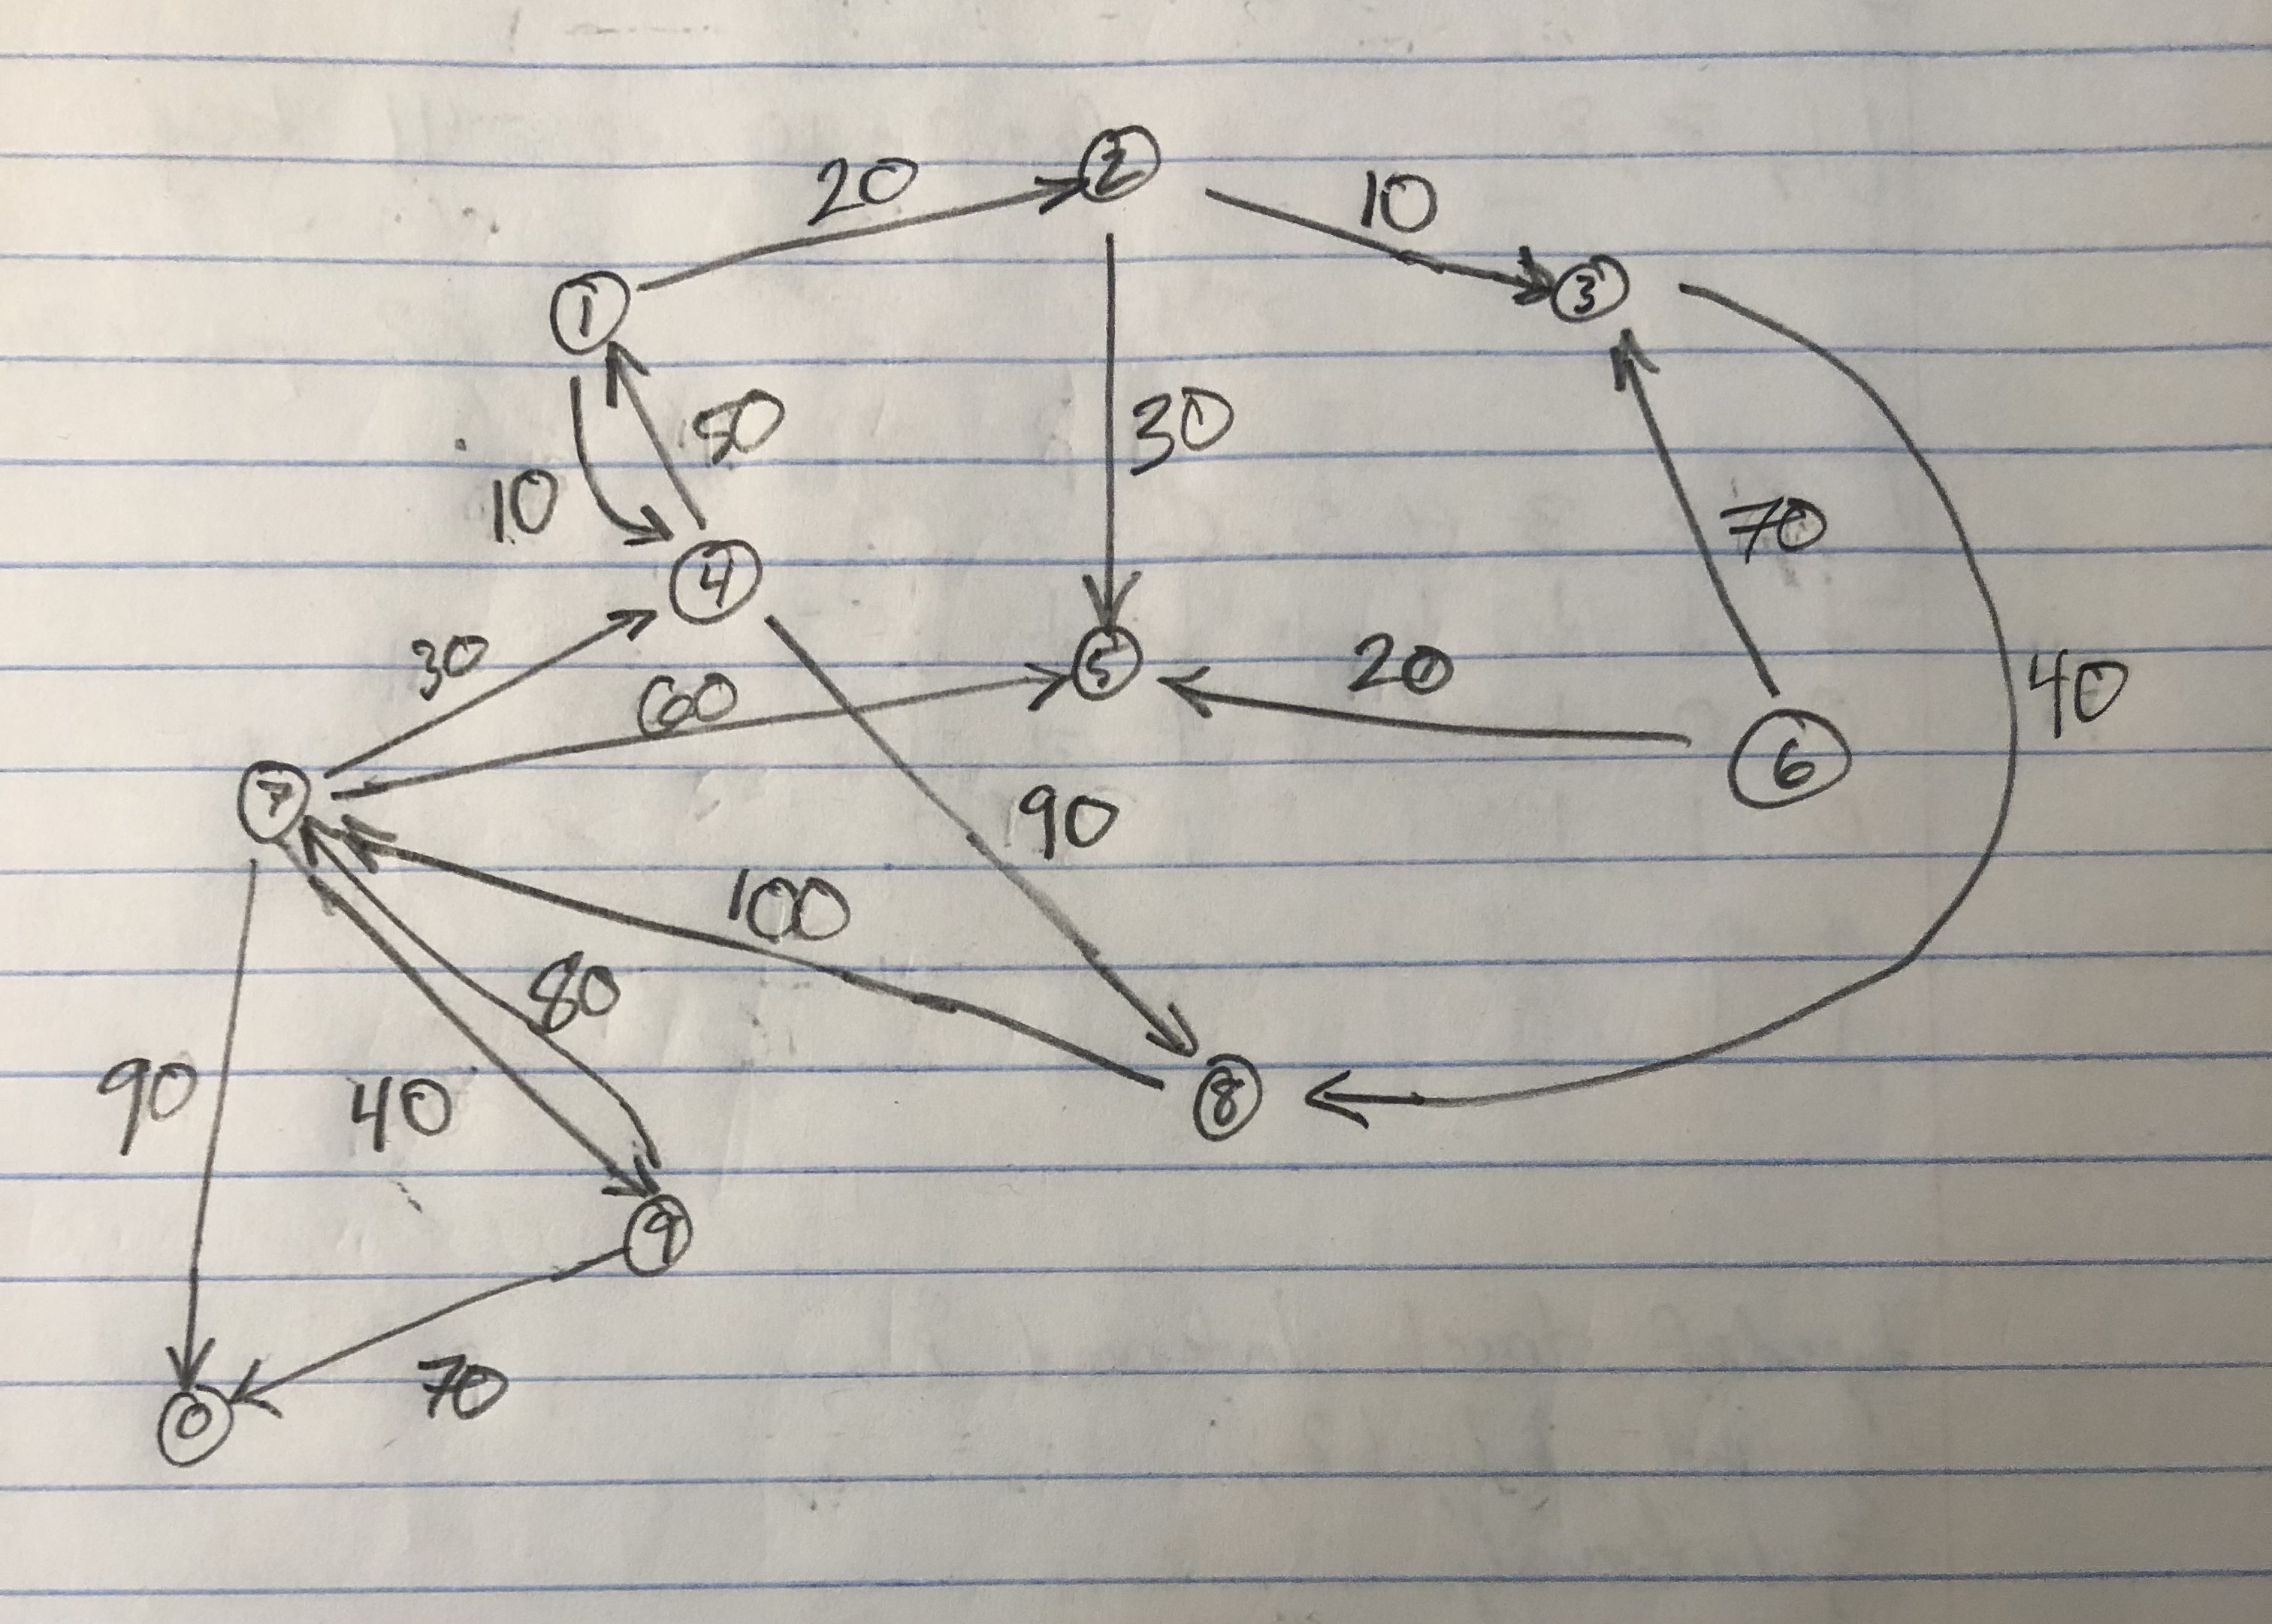 2
20
10
1
3
50
30
10
70
4
30
20
40
60
5
6
7
90
100
80
90
40
8
9
70
0